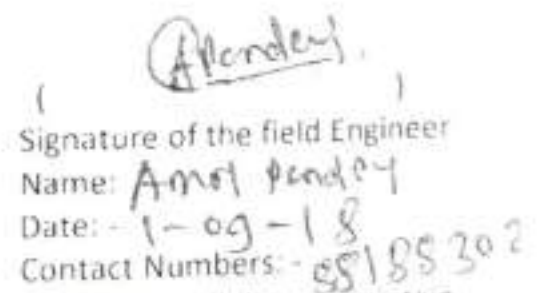 APandey.
( )
Signature of the field Engineer
Name: Amol Pandey
Date: - 1-09-18
Contact Numbers: - 88185302